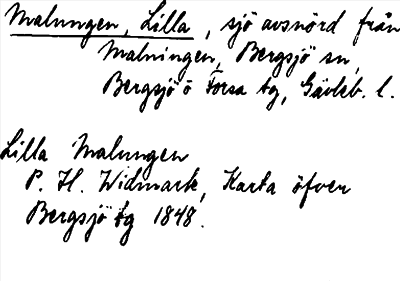 Malungen, Lilla, sjö avsnörd från
Malningen, Bergsjö sn,
Bergsjö o Forsa tg, Gävleb. l.
Lilla Malungen
P. H. Widmark, Karta öfver
Bergsjö tg 1848.